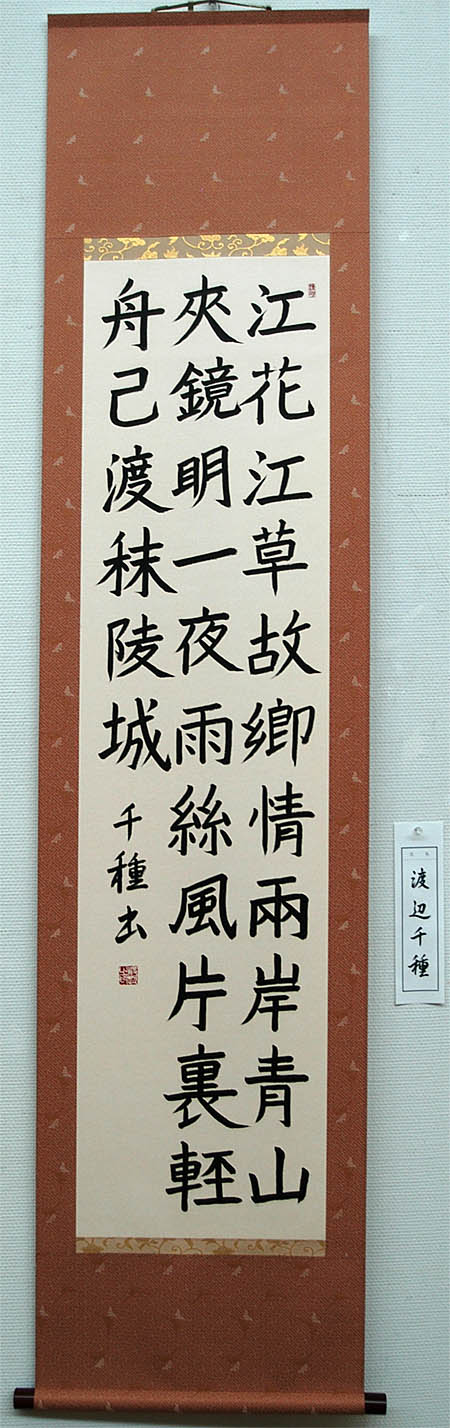 江花江草故鄉情兩岸青山
夾鏡明一夜雨絲風片裏輕
舟己渡秣陵城
千種書
渡辺千種